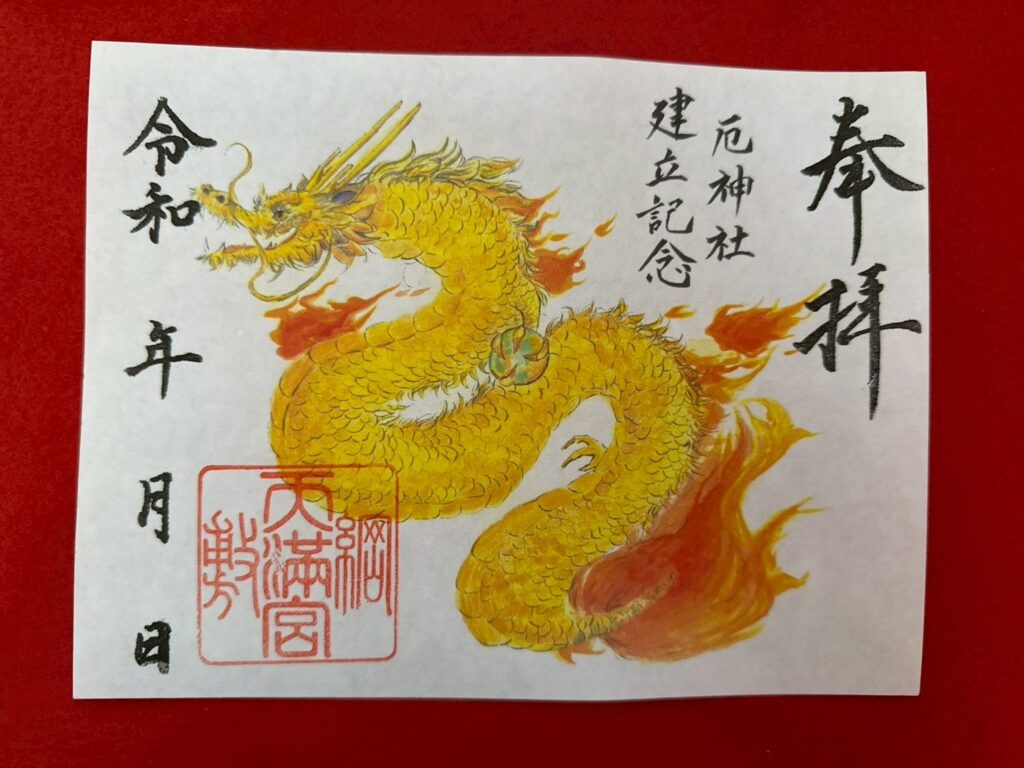 奉拝
厄神社
建立記念
令和 年 月 日
綱
天満宮
敷